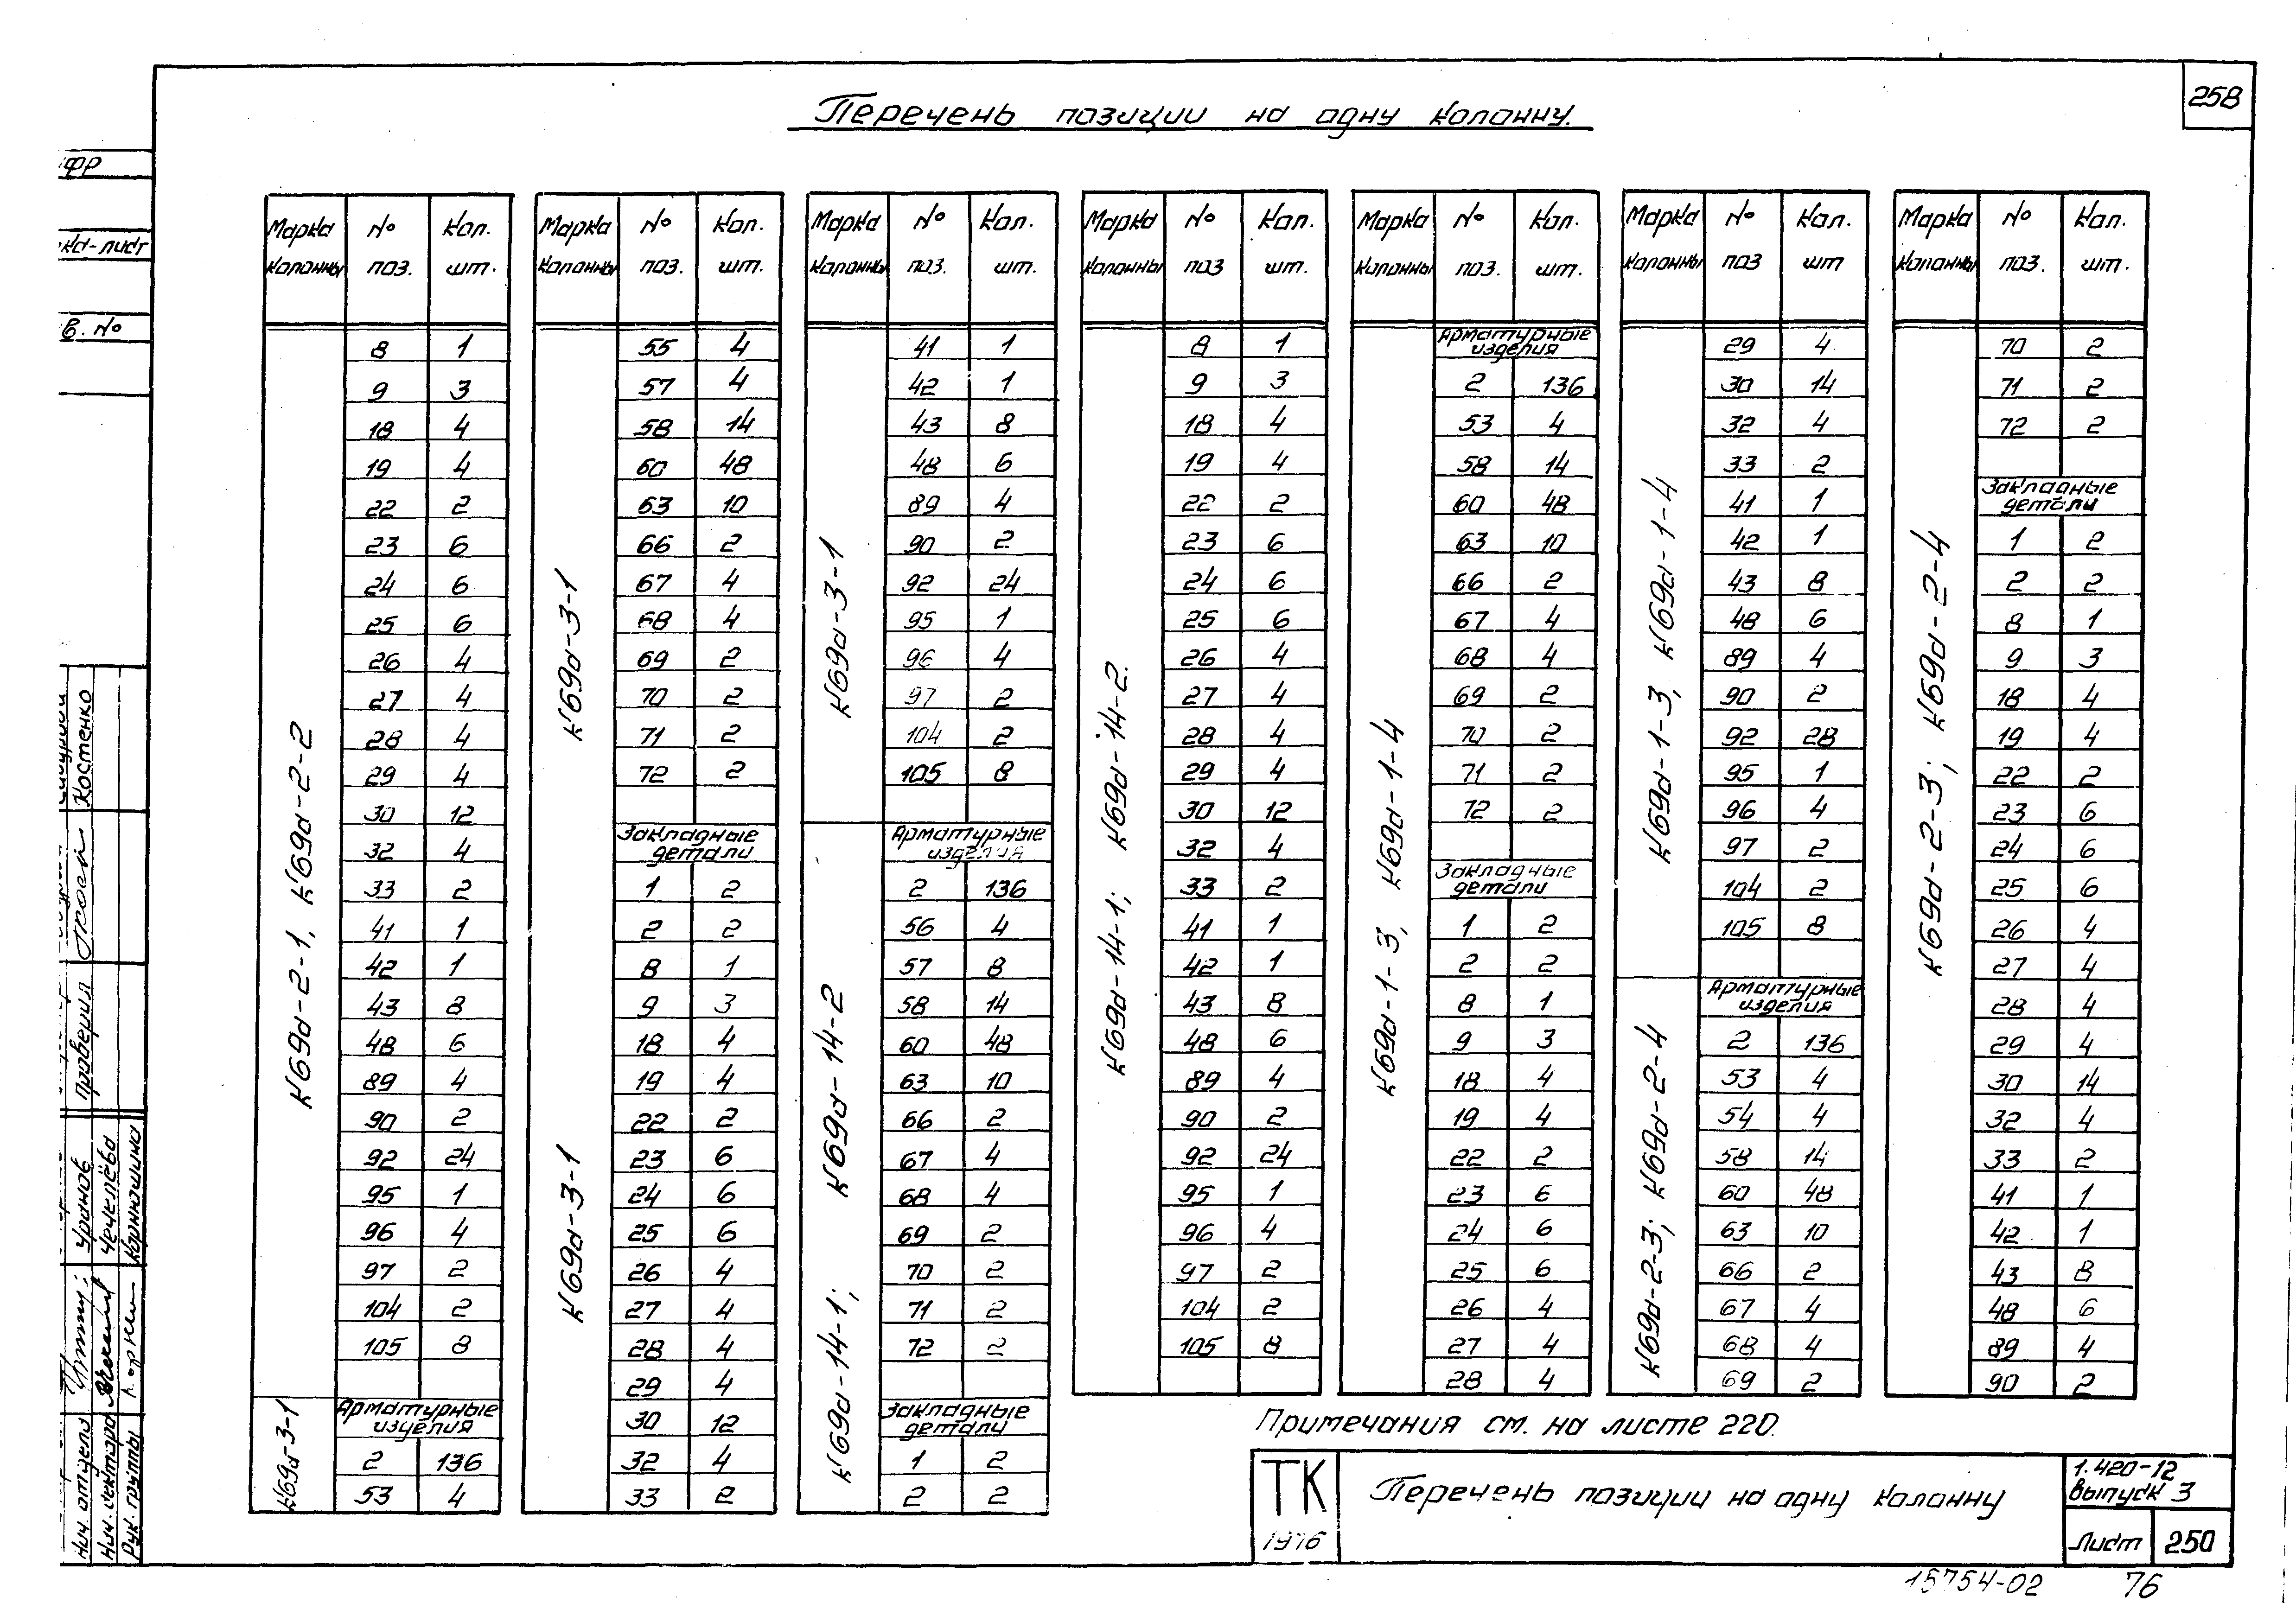 258
Перечень позиции на одну колонну.
Марка колонны | № поз. | Кол. шт.
К69д-2-1, К69д-2-2
8 1
9 3
18 4
19 4
22 2
23 6
24 6
25 6
26 4
27 4
28 4
29 4
30 12
32 4
33 2
41 1
42 1
43 8
48 6
89 4
90 2
92 24
95 1
96 4
97 2
104 2
105 8
К69д-3-1
Арматурные изделия
2 136
53 4
Марка колонны | № поз. | Кол. шт.
К69д-3-1
55 4
57 4
58 14
60 48
63 10
66 2
67 4
68 4
69 2
70 2
71 2
72 2
Закладные детали
К69д-3-1
1 2
2 2
8 1
9 3
18 4
19 4
22 2
23 6
24 6
25 6
26 4
27 4
28 4
29 4
30 12
32 4
33 2
Марка колонны | № поз. | Кол. шт.
К69д-3-1
41 1
42 1
43 8
48 6
89 4
90 2
92 24
95 1
96 4
97 2
104 2
105 8
К69д-14-1; К69д-14-2
Арматурные изделия
2 136
56 4
57 8
58 14
60 48
63 10
66 2
67 4
68 4
69 2
70 2
71 2
72 2
Закладные детали
1 2
2 2
Марка колонны | № поз | Кол. шт.
К69д-14-1; К69д-14-2.
8 1
9 3
18 4
19 4
22 2
23 6
24 6
25 6
26 4
27 4
28 4
29 4
30 12
32 4
33 2
41 1
42 1
43 8
48 6
89 4
90 2
92 24
95 1
96 4
97 2
104 2
105 8
Марка колонны | № поз. | Кол. шт.
К69д-1-3, К69д-1-4
Арматурные изделия
2 136
53 4
58 14
60 48
63 10
66 2
67 4
68 4
69 2
70 2
71 2
72 2
Закладные детали
1 2
2 2
8 1
9 3
18 4
19 4
22 2
23 6
24 6
25 6
26 4
27 4
28 4
Марка колонны | № поз | Кол. шт
К69д-1-3, К69д-1-4
29 4
30 14
32 4
33 2
41 1
42 1
43 8
48 6
89 4
90 2
92 28
95 1
96 4
97 2
104 2
105 8
К69д-2-3; К69д-2-4
Арматурные изделия
2 136
53 4
54 4
58 14
60 48
63 10
66 2
67 4
68 4
69 2
Марка колонны | № поз. | Кол. шт.
К69д-2-3; К69д-2-4
70 2
71 2
72 2
Закладные детали
1 2
2 2
8 1
9 3
18 4
19 4
22 2
23 6
24 6
25 6
26 4
27 4
28 4
29 4
30 14
32 4
33 2
41 1
42 1
43 8
48 6
89 4
90 2
Примечания см. на листе 220.
ТК
1976
Перечень позиции на одну колонну
1.420-12
выпуск 3
Лист 250
15754-02 76
фр
ка-лист
в. №
Костенко
Проверил
Уранов
Чечелёва
Корнюшина
Нач. отдела
Нач. сектора
Рук. группы